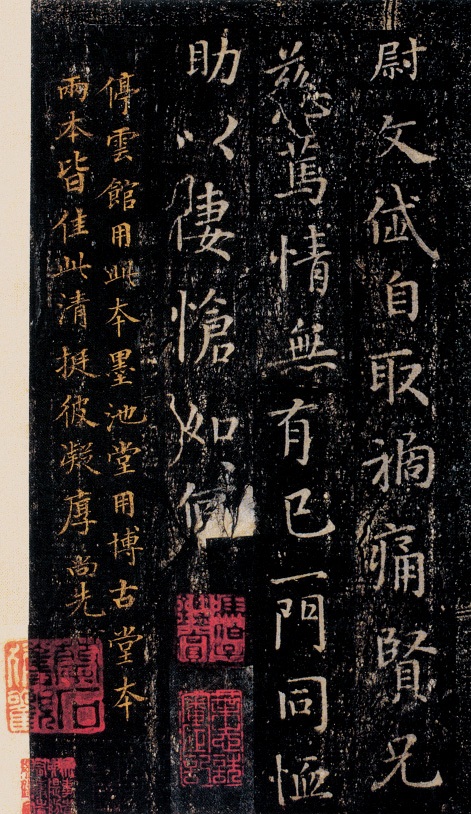 尉文岱自取禍痛賢兄
慈篤情無有已一門同恤
助以悽愴如何
停雲館用此本墨池堂用博古堂本
兩本皆佳此清挺彼凝厚尚先